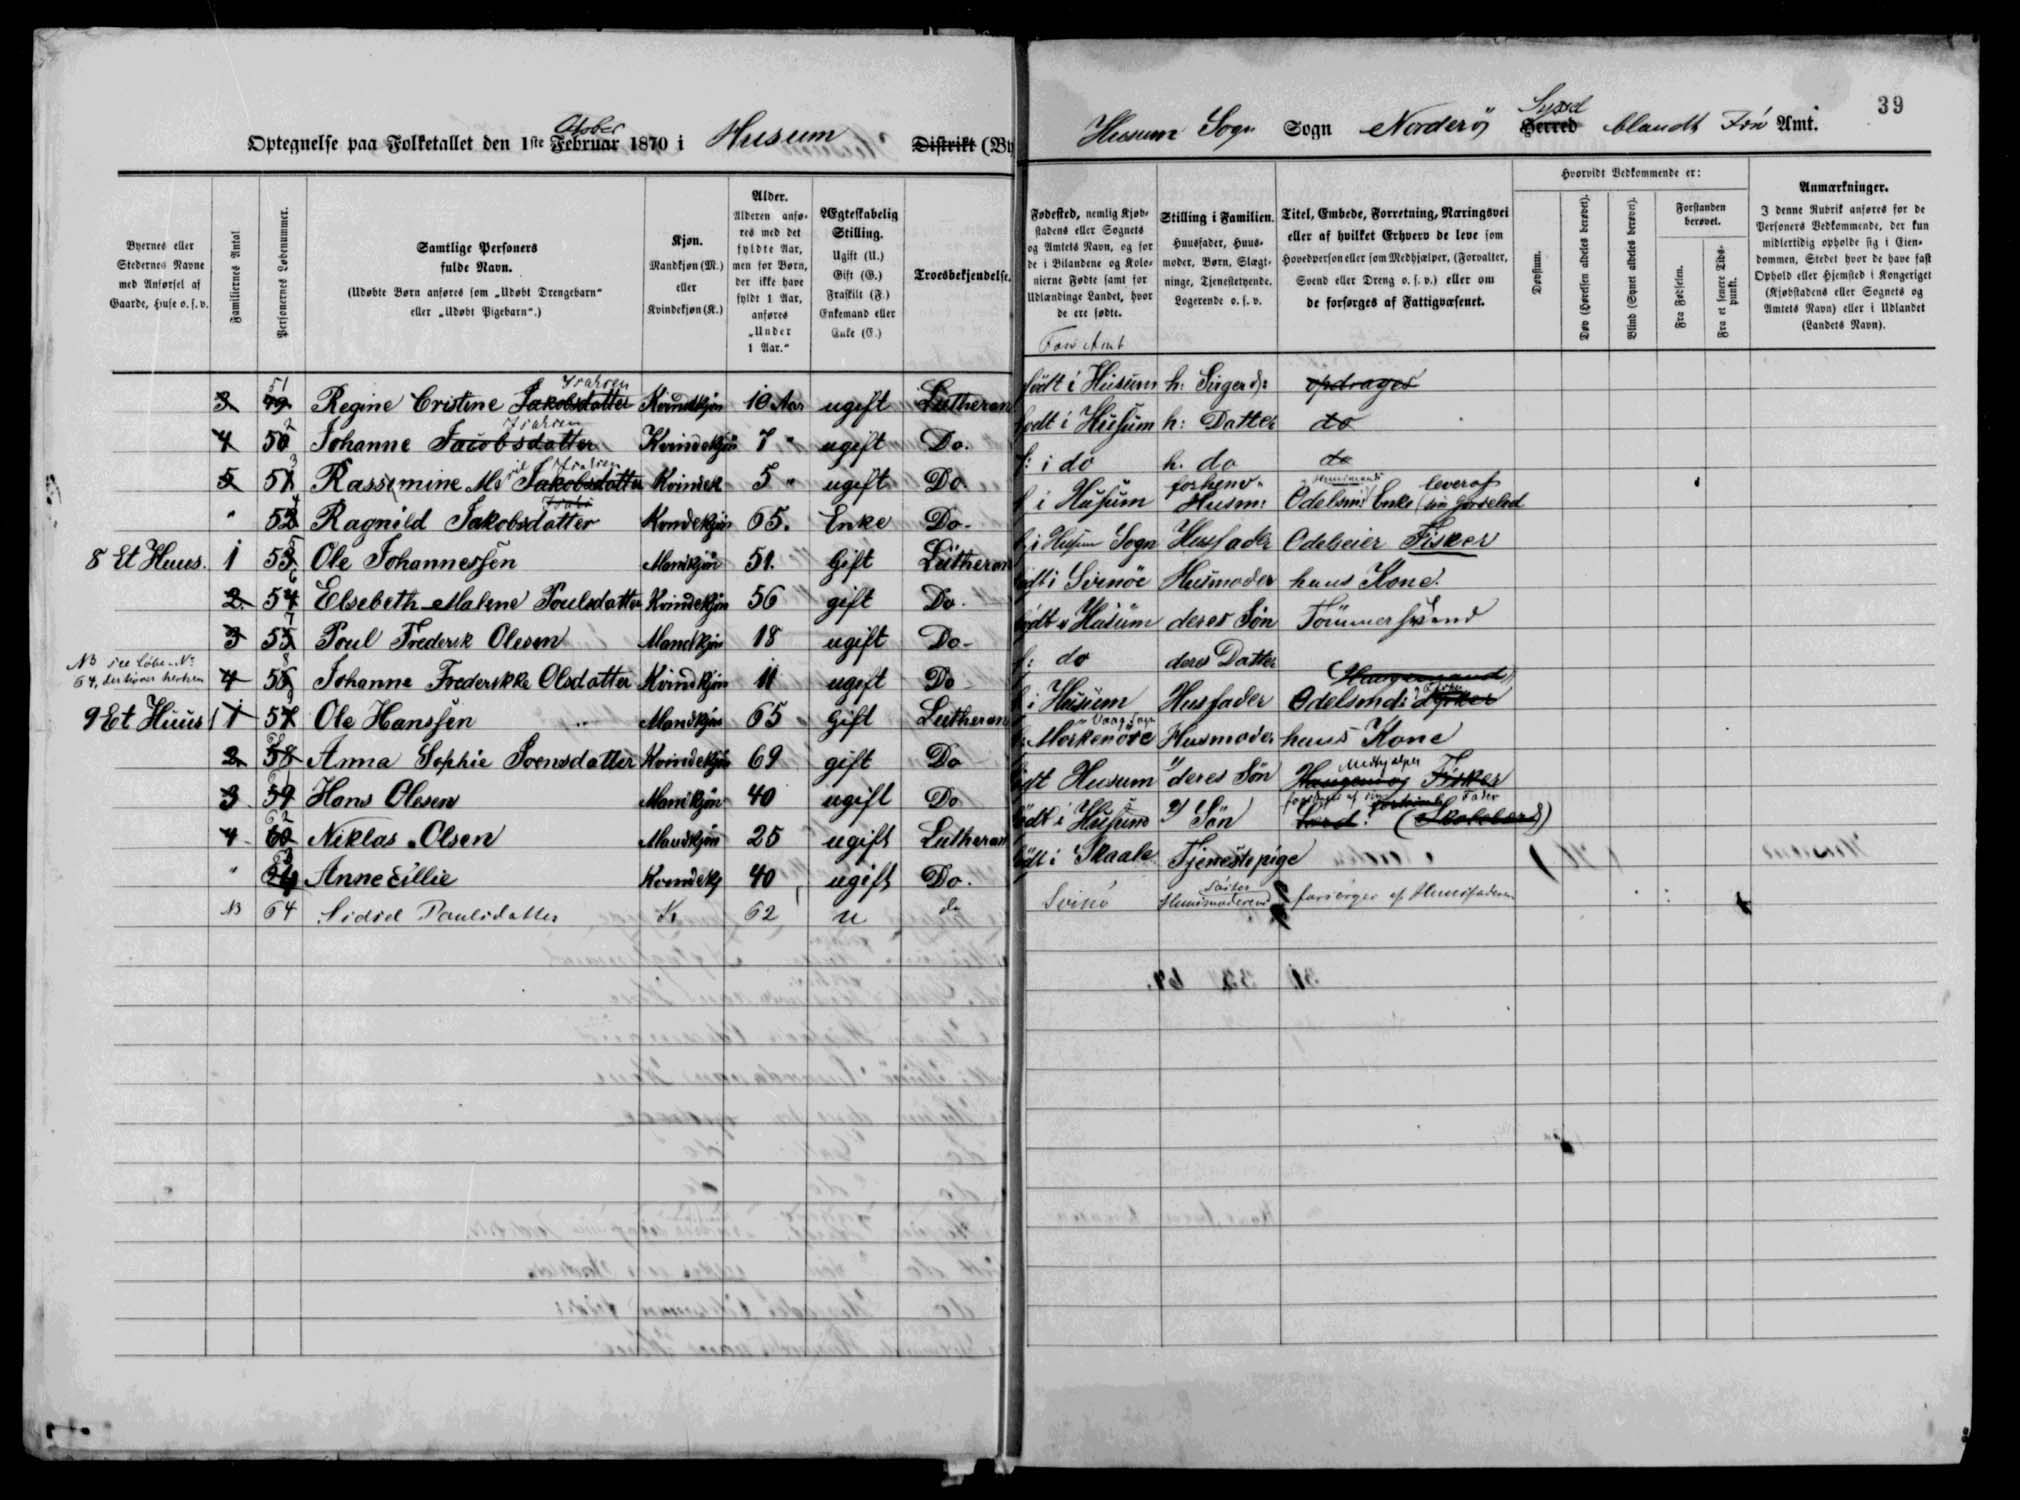 39
Optegnelse paa Folketallet den 1ste Februar 1870 i Husum Distrikt (By
Husum Sogn Sogn Norderö Syssel Herred blandt Amt.
Byernes eller Stedernes Navne med Anførsel af Gaarde, Huse o. s. v.
Familiernes Antal
Personernes Løbenummer.
Samtlige Personers fulde Navn.
(Udøbte Børn anføres som „Udøbt Drengebarn“ eller „Udøbt Pigebarn“.)
Kjøn.
Mandkjøn (M.) eller Kvindekjøn (K.)
Alder.
Alderen anføres med det fyldte Aar, men for Børn, der ikke have fyldt 1 Aar, anføres „Under 1 Aar.“
Ægteskabelig Stilling.
Ugift (U.) Gift (G.) Fraskilt (F.) Enkemand eller Enke (E.)
Troesbekjendelse.
Fødested, nemlig Kjøbstadens eller Sognets og Amtets Navn, og for de i Bilandene og Kolonierne Fødte samt for Udlændinge Landet, hvor de ere fødte.
Stilling i Familien.
Huusfader, Huusmoder, Børn, Slægtninge, Tjenestetyende, Logerende o. s. v.
Titel, Embede, Forretning, Næringsvei eller af hvilket Erhverv de leve som Hovedperson eller som Medhjælper, (Forvalter, Svend eller Dreng o. s. v.) eller om de forsørges af Fattigvæsenet.
Hvorvidt Vedkommende er:
Døvstum.
Døv (Hørelsen aldeles berøvet).
Blind (Synet aldeles berøvet).
Forstanden berøvet.
Fra Fødselen.
Fra et senere Tidspunkt.
Anmærkninger.
I denne Rubrik anføres for de Personers Vedkommende, der kun midlertidig opholde sig i Eiendommen, Stedet hvor de have fast Ophold eller Hjemsted i Kongeriget (Kjøbstadens eller Sognets og Amtets Navn) eller i Udlandet (Landets Navn).
3 49 51 Regine Cristine Jakobsdatter Kvindkjön 10 Aar ugift Lutheran födt i Husum h: opdrages
4 50 2 Johanne Jacobsdatter Kvindekjön 7 " ugift Do. födt i Husum h: Datter do
5 51 3 Jakobsdatter Kvindek 5 " ugift Do f: i do h. do do
" 52 4 Ragnild Jakobsdatter Kvndekjön 65. Enke Do- f i Husum forhenv. Husm: Enke lever af
8 Et Huus. 1 53 5 Ole Johannesſen Mandkjön 51. Gift Lutheran f i Husum Sogn Husfader Odelseier Fisker
2 54 6 Elsebeth Malene Poulsdatter Kvindekjön 56 gift Do. födt i Svinöe Husmoder hans Kone.
3 55 7 Poul Frederik Olesen Mandkjön 18 ugift Do- födt i Husum deres Sön Tömmersvend
NB see Löbe No 64, der hører herhen 4 56 8 Johanne Frederikke Olsdatter Kvindkjön 11 ugift Do f: do deres Datter
9 Et Huus 1 57 Ole Hansſen Mandkjön 65 gift Lutheran f i Husum Husfader Odelsmd:
2 58 Anna Sophie Svensdatter Kvindekjön 69 gift Do Husmoder hans Kone
3 59 61 Hans Olesen Mandkjön 40 ugift Do födt Husum deres Sön Medhjælper Fisker
4 60 62 Niklas Olsen Mandkjön 25 ugift Lutheran födt i Husum Sön
" Anne Cillie Kvindekj 40 ugift Do. födt i Skaale Tjenestepige
NB 64 Poulsdatter K 62 u do Svinö Søster forsørges af Huusfaderen